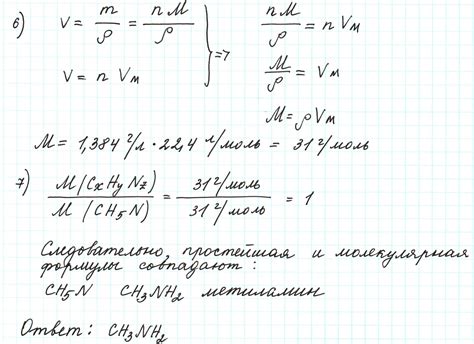 6) V = m/ρ = nM/ρ } => nM/ρ = n Vм
V = n Vм
M/ρ = Vм
M = ρVм
M = 1,384 г/л · 22,4 л/моль = 31 г/моль
7) M(CxHyNz)/M(CH5N) = 31 г/моль / 31 г/моль = 1
Следовательно, простейшая и молекулярная
формулы совпадают:
CH5N CH3NH2 метиламин
Ответ: CH3NH2